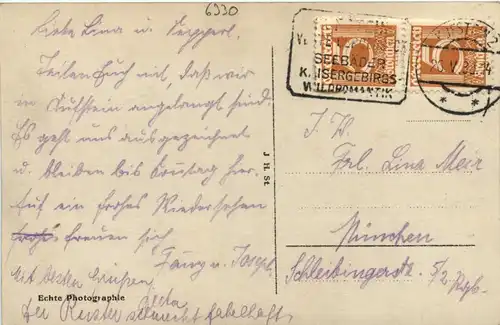 6930
Liebe Lina u. Seppperl.
Teilen Euch mit, daß wir
in Kufstein angelangt sind.
Es geht uns ausgezeichnet
u. bleiben bis Sonntag hier.
Auf ein frohes Wiedersehen
freuen sich
Fanny u. Josef.
Mit besten Grüßen
Der schmeckt fabelhaft.
Echte Photographie
J. H. St.
SEEBÄDER
KAISERGEBIRGS-
WILDROMANTIK
I. W.
Frl. Lina Meir
München
Schleibingerstr. 5/2 Rgb.